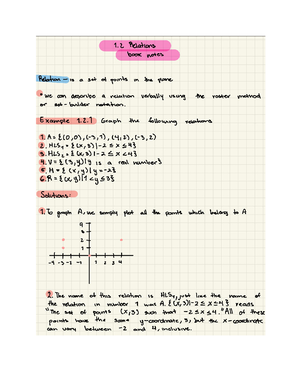 1.2 Relations
book notes
Relation - is a set of points in the plane
*we can describe a relation verbally using the roster method
or set-builder notation.
Example 1.2.1 Graph the following relations
1. A = {(0,0), (-3,1), (4,2), (-3,2)
2. HLS₁ = {(x,3)|-2 ≤ x ≤ 4}
3. HLS₂ = {(x,3)|-2 ≤ x < 4}
4. V = {(3,y)|y is a real number}
5. H = {(x,y)|y = -2}
6. R = {(x,y)|1 < y ≤ 3}
Solutions:
1. To graph A, we simply plot all the points which belong to A
4
3
2
1
-4 -3 -2 -1 1 2 3 4
2. The name of this relation is HLS₁, just like the name of
the relation in number 1 was A. {(x,3)|-2 ≤ x ≤ 4} reads
"The set of points (x,3) such that -2 ≤ x ≤ 4." All of these
points have the same y-coordinate, 3, but the x-coordinate
can vary between -2 and 4, inclusive.